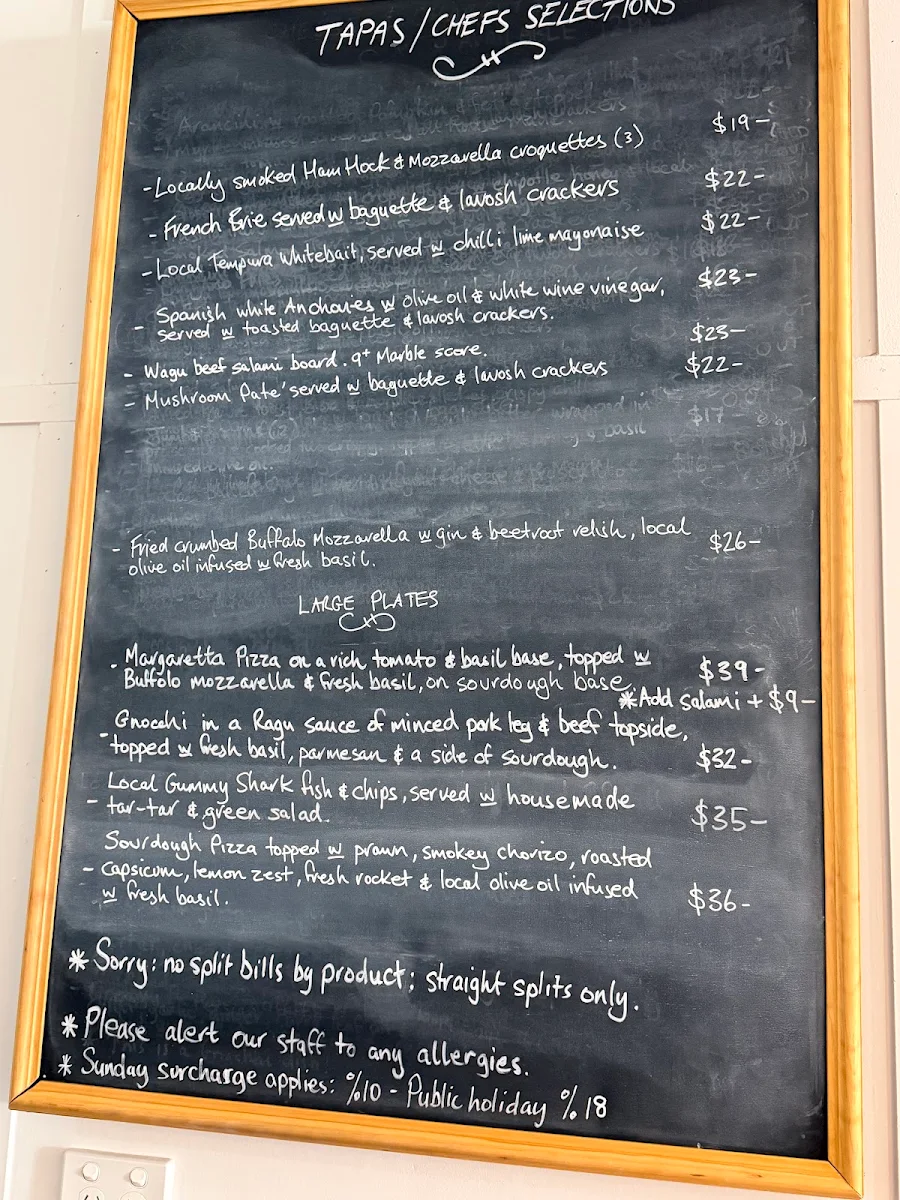 TAPAS/CHEFS SELECTIONS
- Locally smoked Ham Hock & Mozzarella croquettes (3) $19-
- French Brie served w baguette & lavosh crackers $22-
- Local Tempura Whitebait, served w chilli lime mayonaise $22-
- Spanish white Anchovies w olive oil & white wine vinegar, $23-
served w toasted baguette & lavosh crackers.
- Wagu beef salami board. 9+ Marble score. $23-
- Mushroom Pate' served w baguette & lavosh crackers $22-
$17-
- Fried crumbed Buffalo Mozzarella w gin & beetroot relish, local $26-
olive oil infused w fresh basil.
LARGE PLATES
- Margaretta Pizza on a rich tomato & basil base, topped w $39-
Buffalo mozzarella & fresh basil, on sourdough base
*Add salami + $9-
- Gnocchi in a Ragu sauce of minced pork leg & beef topside,
topped w fresh basil, parmesan & a side of sourdough. $32-
Local Gummy Shark fish & chips, served w housemade
- tar-tar & green salad. $35-
Sourdough Pizza topped w prawn, smokey chorizo, roasted
- capsicum, lemon zest, fresh rocket & local olive oil infused
w fresh basil. $36-
* Sorry: no split bills by product; straight splits only.
* Please alert our staff to any allergies.
* Sunday surcharge applies: %10 - Public holiday %18